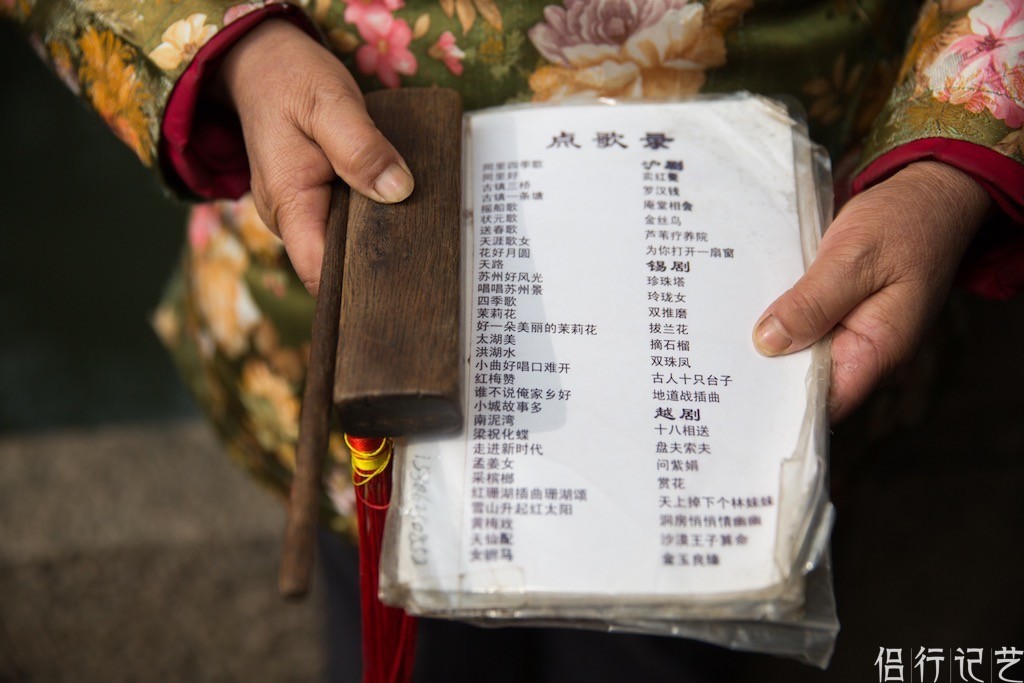 点歌录
阿里四季歌
阿里好
古镇三桥
古镇一条塘
摇船歌
状元歌
送春歌
天涯歌女
花好月圆
天路
苏州好风光
唱唱苏州景
四季歌
茉莉花
好一朵美丽的茉莉花
太湖美
洪湖水
小曲好唱口难开
红梅赞
谁不说俺家乡好
小城故事多
南泥湾
梁祝化蝶
走进新时代
孟姜女
采槟榔
红珊湖插曲珊湖颂
雪山升起红太阳
黄梅戏
天仙配
女驸马
沪剧
卖红菱
罗汉钱
庵堂相会
金丝鸟
芦苇疗养院
为你打开一扇窗
锡剧
珍珠塔
玲珑女
双推磨
拔兰花
摘石榴
双珠凤
古人十只台子
地道战插曲
越剧
十八相送
盘夫索夫
问紫娟
赏花
天上掉下个林妹妹
洞房悄悄情幽幽
沙漠王子算命
金玉良缘
侣行记艺